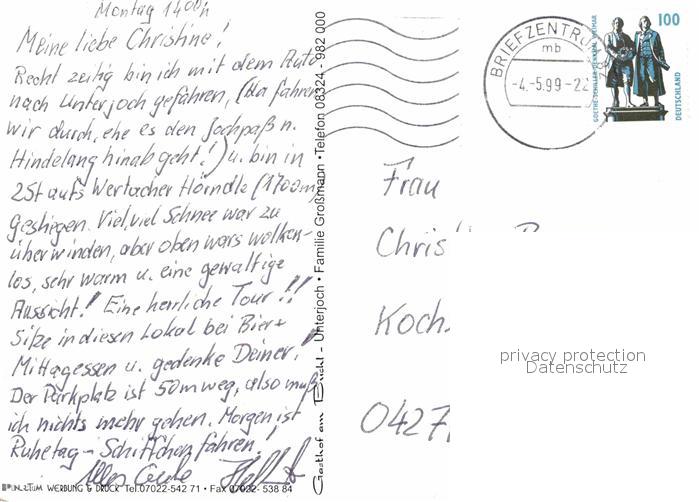 Montag 1400h
Meine liebe Christine!
Recht zeitig bin ich mit dem Auto
nach Unterjoch gefahren, (da fahren
wir durch, ehe es den Jochpaß n.
Hindelang hinab geht!) u. bin in
2St aufs Wertacher Hörndle (1700m)
gestiegen. Viel, viel Schnee war zu
überwinden, aber oben wars wolken-
los, sehr warm u. eine gewaltige
Aussicht! Eine herrliche Tour!!
Sitze in diesen Lokal bei Bier +
Mittagessen u. gedenke Deiner!
Der Parkplatz ist 50m weg, also muß
ich nichts mehr gehen. Morgen ist
Ruhetag - Schiffchen fahren!
Alles Gute
WERBUNG & DRUCK Tel. 07022-542 71 • Fax 07022-538 84
Gasthof am Buchl - Unterjoch • Familie Großmann • Telefon 08324 - 982 000
BRIEFZENTRUM
mb
-4.-5.99-22
100
DEUTSCHLAND
GOETHE-SCHILLER-DENKMAL WEIMAR
Frau
Christ
Koch.
0427
privacy protection
Datenschutz